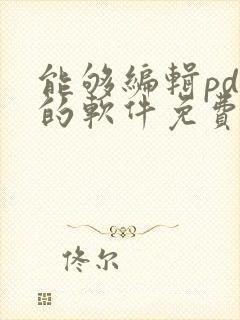 能够编辑pd
的软件免费
佟尔